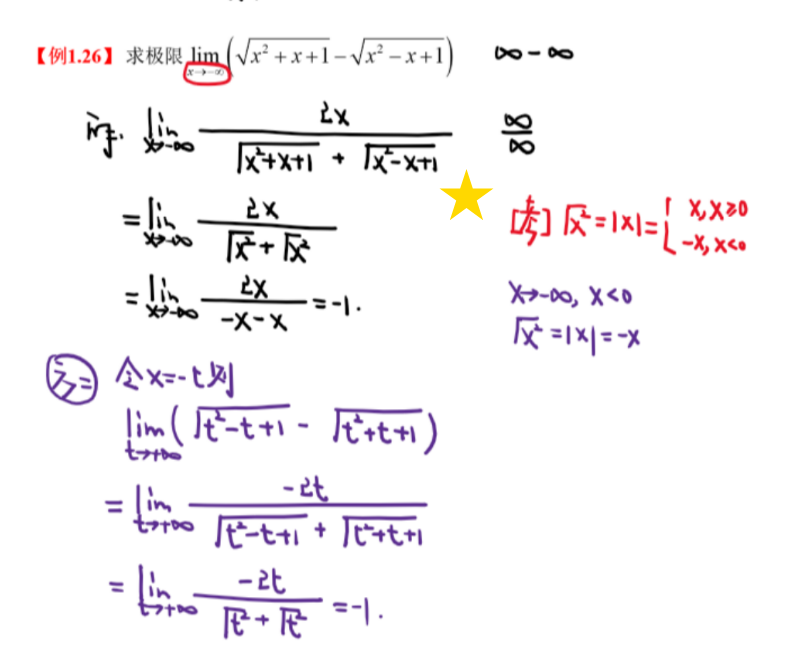 【例1.26】 求极限 lim x→-∞ (√(x²+x+1) - √(x²-x+1)) ∞-∞
lim x→-∞ 2x / (√(x²+x+1) + √(x²-x+1)) ∞/∞
= lim x→-∞ 2x / (√x² + √x²)
[ ] √x² = |x| = { x, x≥0
-x, x<0
= lim x→-∞ 2x / (-x-x) = -1.
x→-∞, x<0
√x² = |x| = -x
令x=-t 则
lim t→+∞ (√(t²-t+1) - √(t²+t+1))
= lim t→+∞ -2t / (√(t²-t+1) + √(t²+t+1))
= lim t→+∞ -2t / (√t² + √t²) = -1.